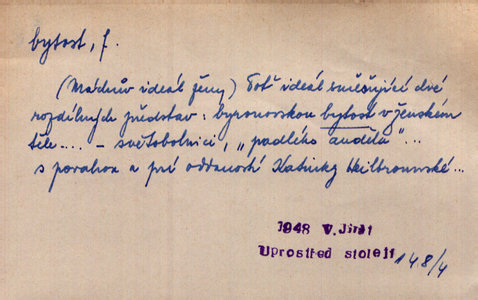 bytost, f.
(Máchův ideál ženy) Toť ideál směšující dvě
rozdílných představ: byronovskou bytost v ženském
těle.... – světobolnici, „padlého anděla"...
s povahou a psí oddaností Katinky Heilbronnské...
1948 V. Jirát
Uprostřed století 148/4